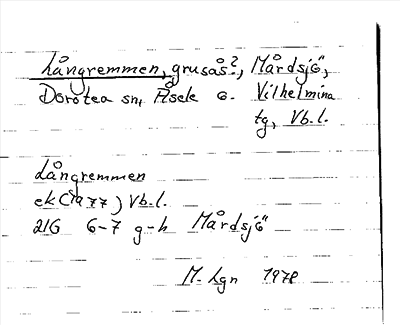 Långremmen, grusås?, Mårdsjö,
Dorotea sn, Åsele o. Vilhelmina
tg, Vb.l.
Långremmen
ek (Sa 77) Vb.l.
21G 6-7 g-h Mårdsjö
M. Lgn 1978